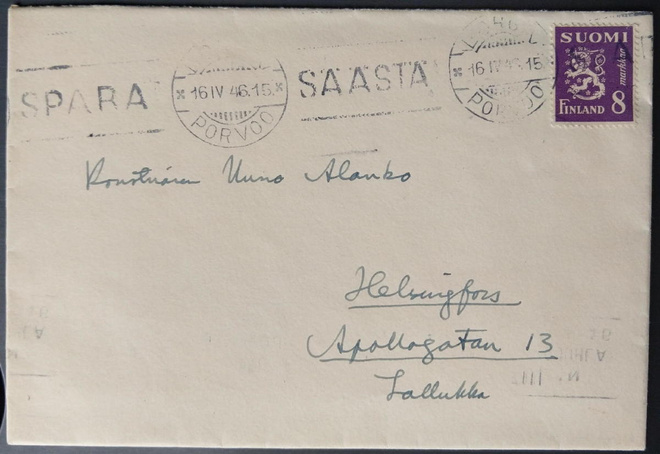 SPARA
16 IV 46.15
PORVOO
SÄÄSTÄ
16 IV 46.15
PORVOO
SUOMI
markkaa
FINLAND 8
Konstnären Uuno Alanko
Helsingfors
Apollogatan 13
Lallukka